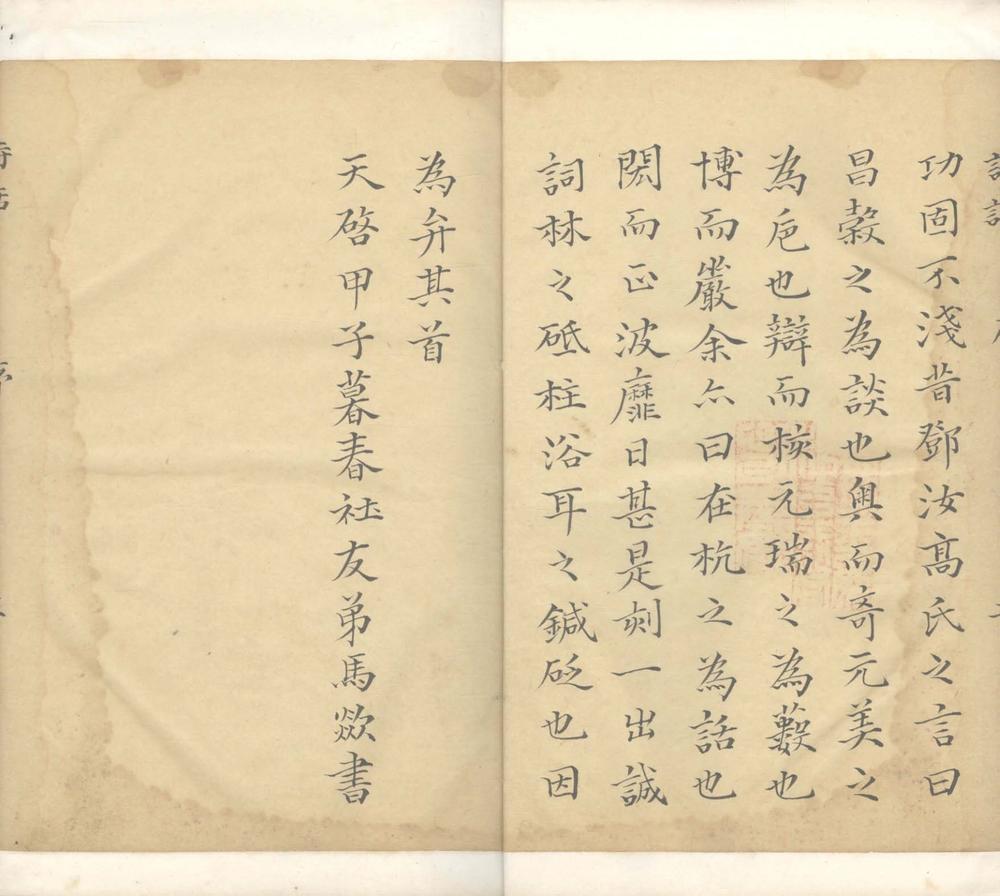 功固不淺昔鄧汝髙氏之言曰
昌榖之為談也奥而奇元美之
為巵也辯而核元瑞之為藪也
博而巖余亦曰在杭之為話也
閎而正波靡日甚是刻一出誠
詞林之砥柱浴耳之鍼砭也因
為弁其首
天啓甲子暮春社友弟馬歘書